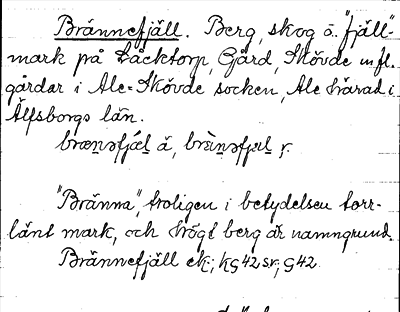 Brännefjäll. Berg, skog o. "fjäll"-
mark på Läcktorp, Gård, Skövde m fl.
gårdar i Ale-Skövde socken, Ale härad i
Älfsborgs län.
"Bränna", troligen i betydelsen torr-
länt mark, och högt berg är namngrund.
Brännefjäll ek; kG42sr; G42